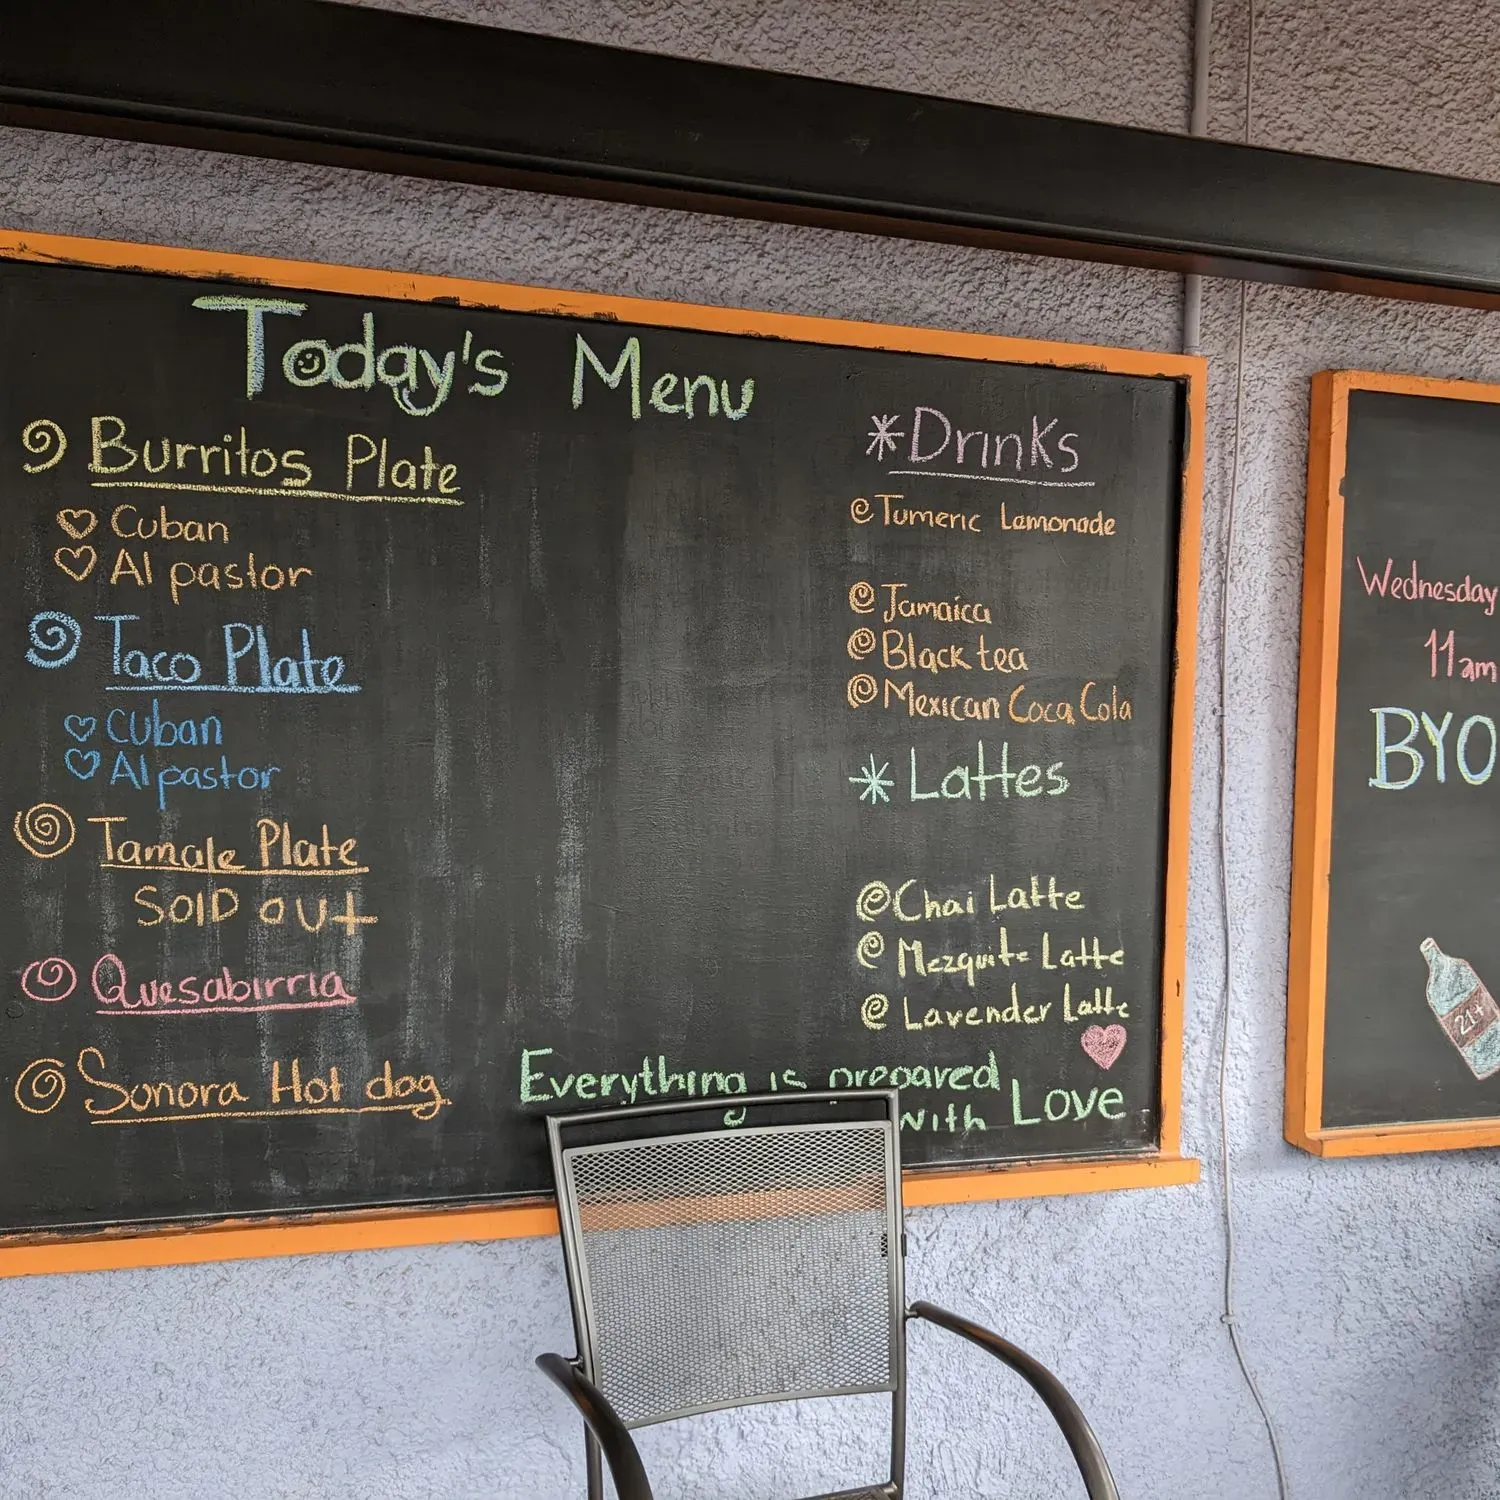 Today's Menu
Burritos Plate
Cuban
Al pastor
Taco Plate
Cuban
Al pastor
Tamale Plate
SOLD OUT
Quesabirria
Sonora Hot dog
Drinks
Tumeric Lemonade
Jamaica
Black tea
Mexican Coca Cola
Lattes
Chai Latte
Mezquite Latte
Lavender Latte
Everything is prepared
with Love
Wednesday
11am
BYO
21+